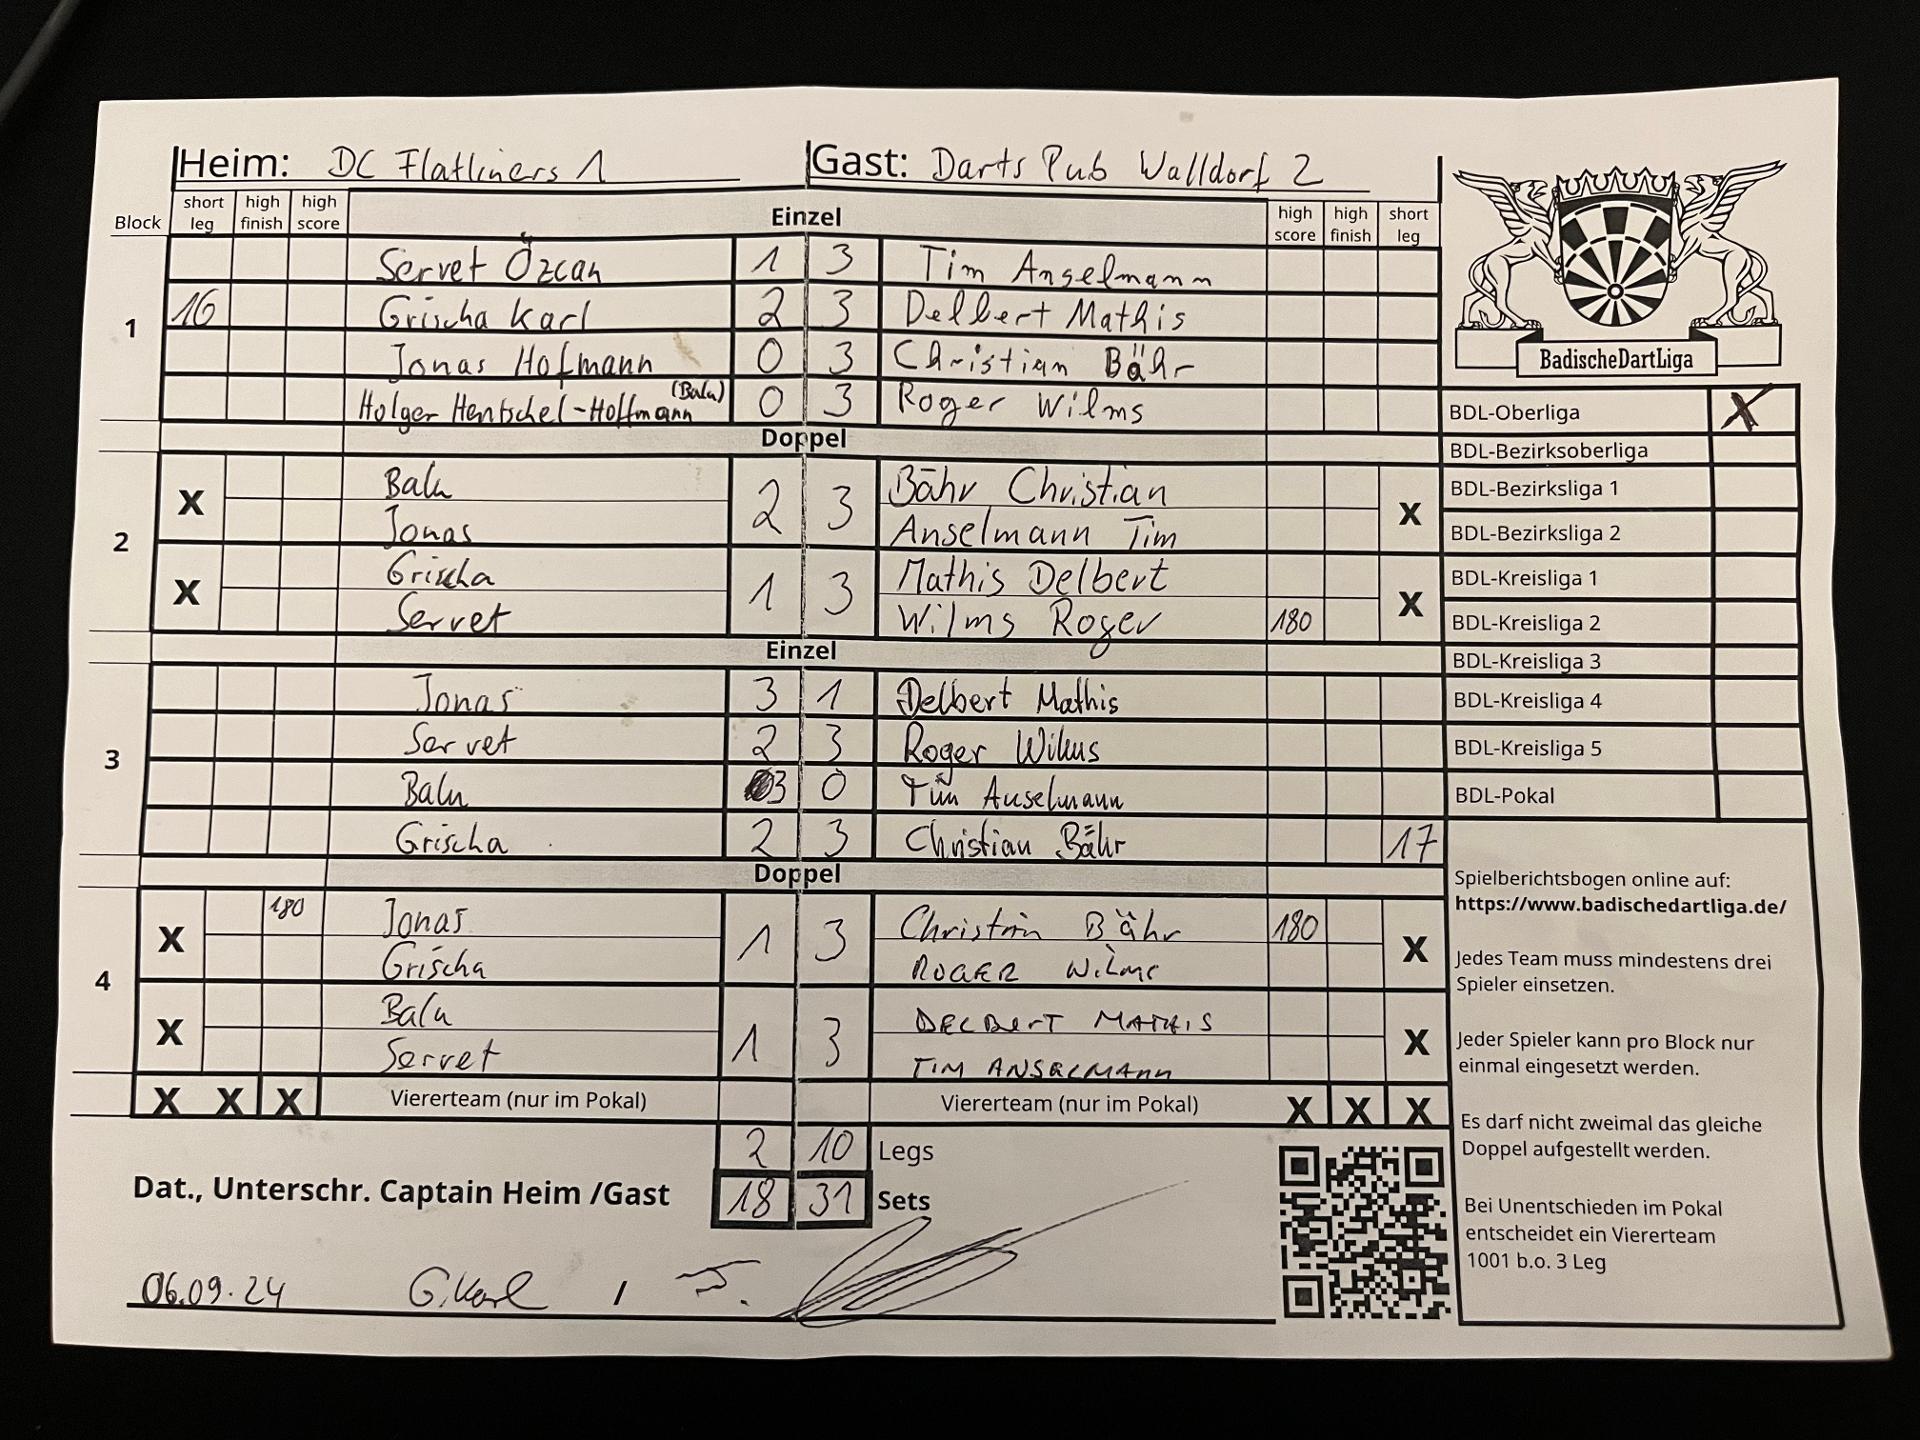 Heim: DC Flatliners 1 Gast: Darts Pub Walldorf 2
Block short leg high finish high score Einzel high score high finish short leg
Servet Özcan 1 3 Tim Anselmann
1 16 Grischa Karl 2 3 Delbert Mathis
Jonas Hofmann 0 3 Christian Bähr
Holger Hentschel-Hoffmann (Balu) 0 3 Roger Wilms
Doppel
2
X Balu 2 3 Bähr Christian X
Jonas Anselmann Tim
X Grischa 1 3 Mathis Delbert X
Servet Wilms Roger 180
Einzel
3
Jonas 3 1 Delbert Mathis
Servet 2 3 Roger Wilms
Balu 3 0 Tim Anselmann
Grischa 2 3 Christian Bähr 17
Doppel
4
X 180 Jonas 1 3 Christian Bähr 180 X
Grischa ROGER Wilms
X Balu 1 3 DELBERT MATHIS X
Servet TIM ANSELMANN
X X X Viererteam (nur im Pokal) Viererteam (nur im Pokal) X X X
2 10 Legs
Dat., Unterschr. Captain Heim /Gast 18 31 Sets
06.09.24 G.Karl /
BadischeDartLiga
BDL-Oberliga X
BDL-Bezirksoberliga
BDL-Bezirksliga 1
BDL-Bezirksliga 2
BDL-Kreisliga 1
BDL-Kreisliga 2
BDL-Kreisliga 3
BDL-Kreisliga 4
BDL-Kreisliga 5
BDL-Pokal
Spielberichtsbogen online auf:
https://www.badischedartliga.de/
Jedes Team muss mindestens drei
Spieler einsetzen.
Jeder Spieler kann pro Block nur
einmal eingesetzt werden.
Es darf nicht zweimal das gleiche
Doppel aufgestellt werden.
Bei Unentschieden im Pokal
entscheidet ein Viererteam
1001 b.o. 3 Leg